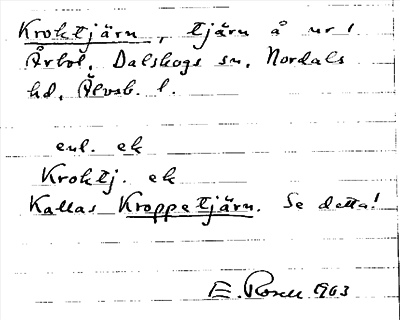 Kroktjärn, tjärn å ur!
Årbol, Dalskogs sn, Nordals
hd, Älvsb. l.
enl. ek
Kroktj. ek
Kallas Kroppetjärn. Se detta!
E. Rosell 1963